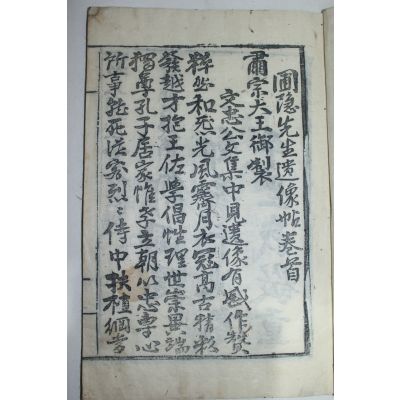 圃隱先生遺像帖卷首
肅宗大王御製
文忠公文集中見遺像有感作贊
粹然和氣光風霽月衣冠高古精彩
發越才抱王佐學倡性理世崇異端
獨尊孔子居家惟孝立朝以忠專心
所事能死從容烈〻侍中扶植綱常